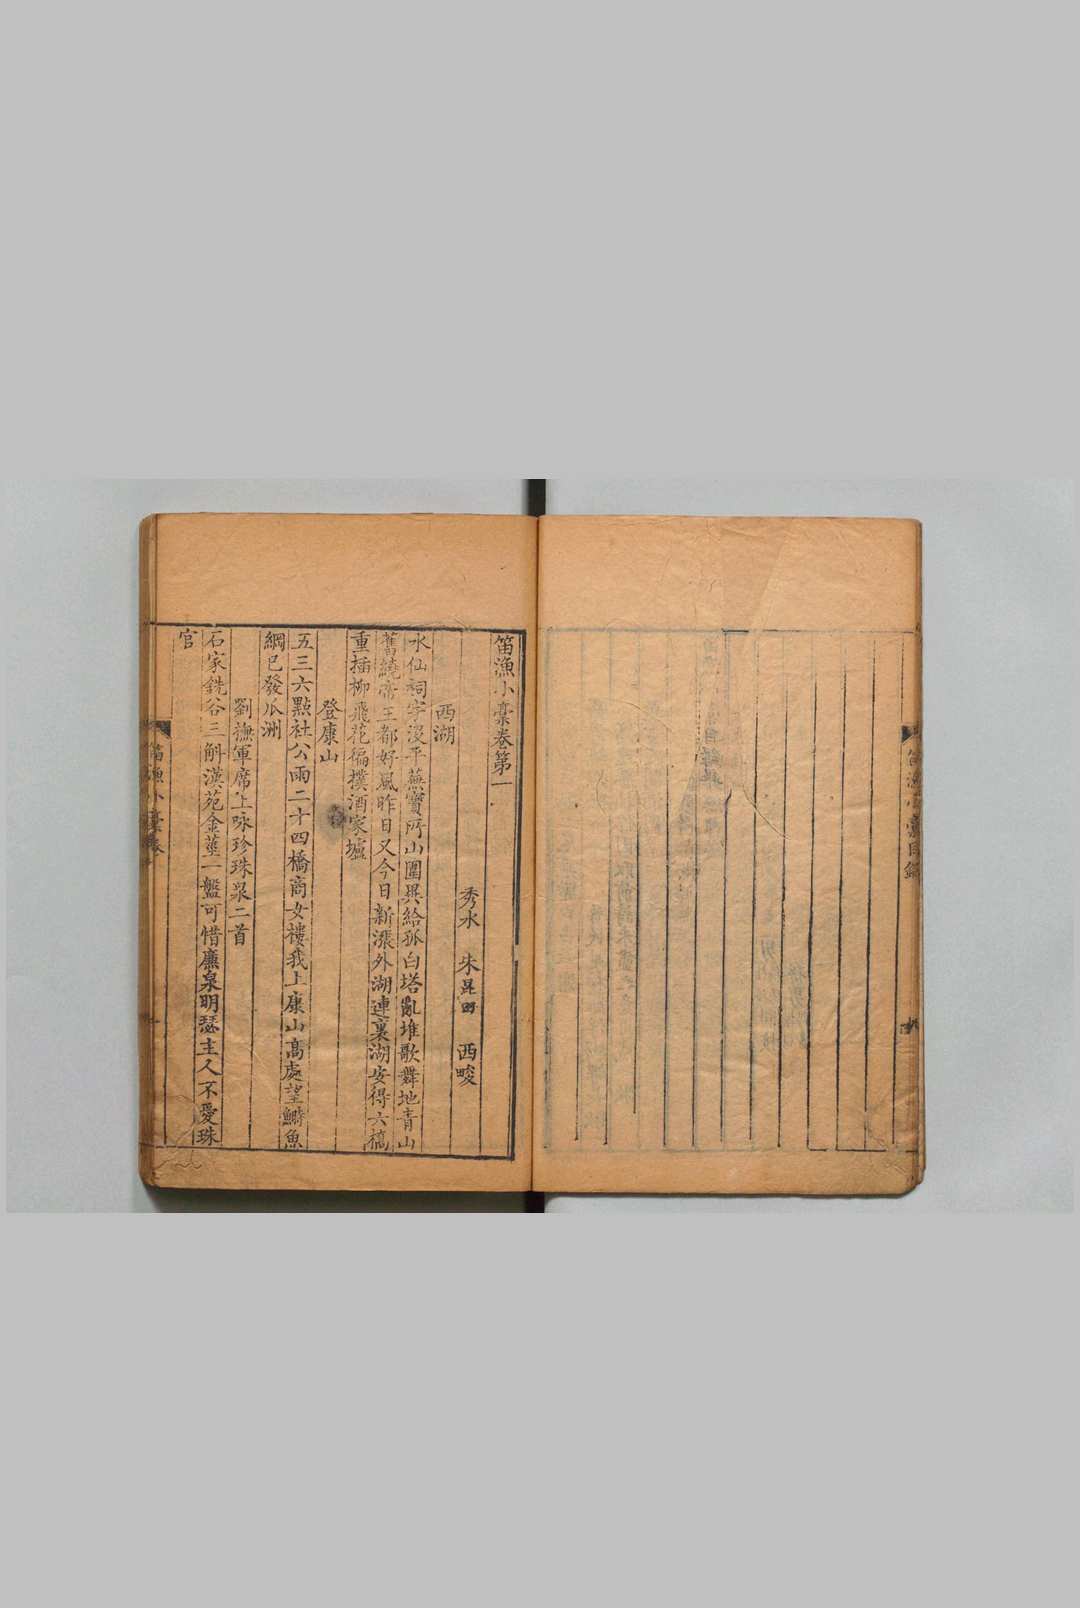 笛漁小稾目錄
笛漁小稾卷第一
秀水 朱昆田 西畯
西湖
水仙祠宇沒平蕪寶所山圍異給孤白塔亂堆歌舞地青山
舊繞帝王都好風昨日又今日新漲外湖連裏湖安得六橋
重插柳飛花徧撲酒家壚
登康山
五三六點社公雨二十四橋商女樓我上康山高處望鰣魚
綱已發瓜洲
劉撫軍席上咏珍珠泉二首
石家銑谷三斛漢苑金莖一盤可惜廉泉明瑟主人不愛珠
官
笛漁小稾卷一